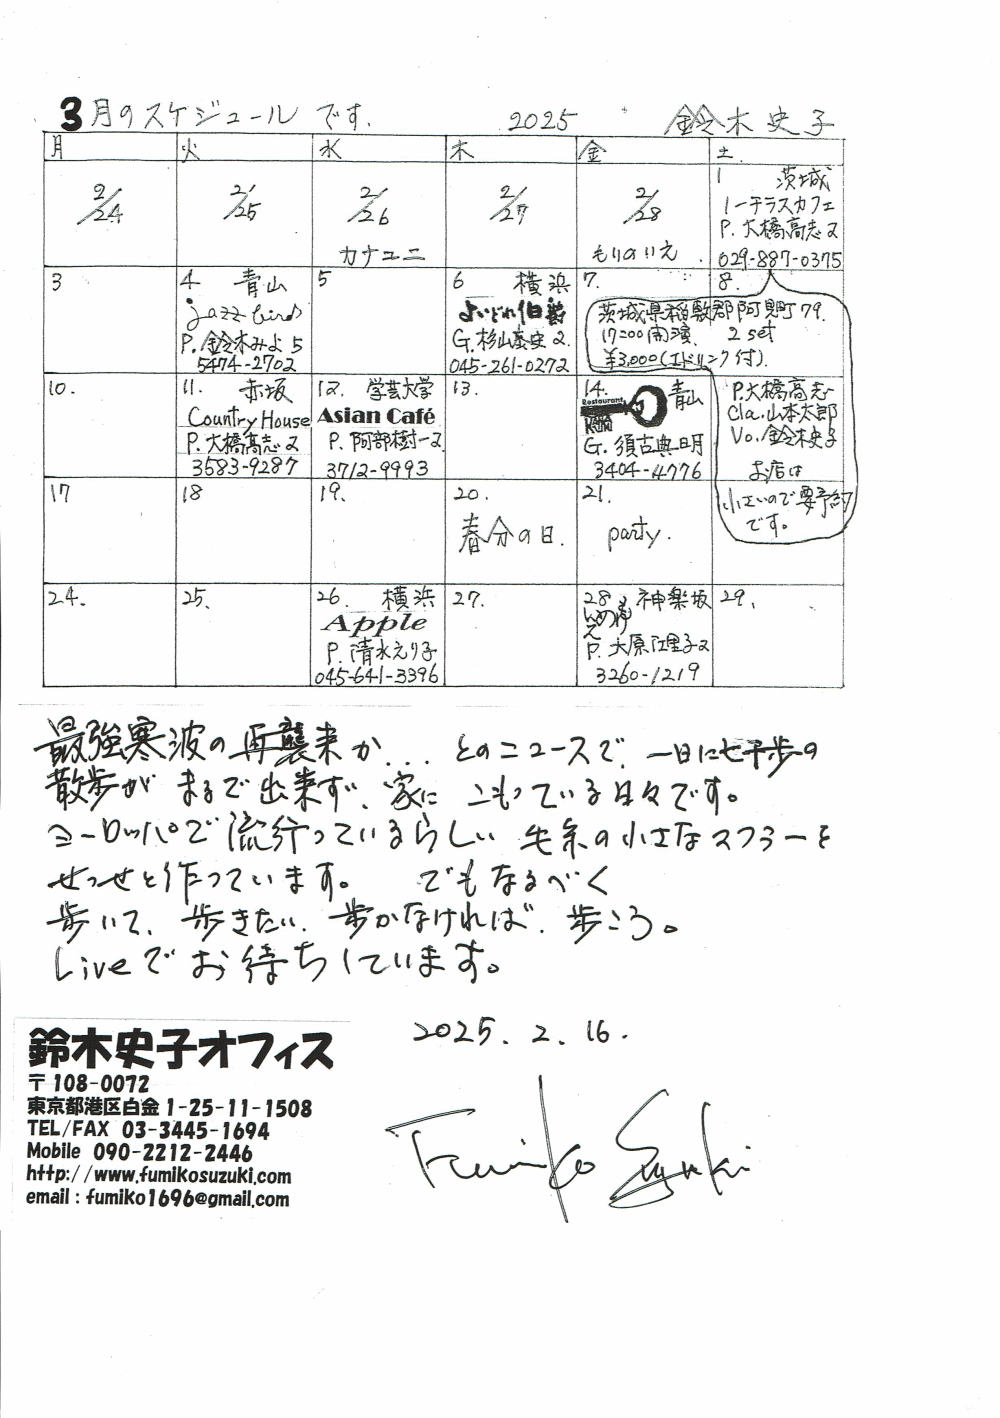 3月のスケジュールです. 2025 鈴木史子
月 火 水 木 金 土
2/24
2/25
2/26
カナユニ
2/27
2/28
もりのいえ.
1 茨城
1-テラスカフェ
P. 大橋高志ス
029-887-0375
3
4. 青山
jazz bird
P. 鈴木みよ5
5474-2702
5
6 横浜
よいどれ伯爵
G. 杉山泰史ス.
045-261-0272
7.
8.
茨城県稲敷郡阿見町79.
17:00開演. 2set
¥3,000(1ドリンク付).
P. 大橋高志
Cla. 山本太郎
Vo. 鈴木史子
お店は
小さいので要予約
です。
10.
11. 赤坂
Country House
P. 大橋高志ス
3583-9287
12. 学芸大学
Asian Café
P. 阿部樹一ス.
3712-9993
13.
14. 青山
Restaurant
G. 須古典明
3404-4776
17
18
19.
20.
春分の日.
21.
party.
24.
25.
26. 横浜
Apple
P. 清水えり子
045-641-3396
27.
28. 神楽坂
もりのいえ
P. 大原江里子ス
3260-1219
29.
最強寒波の再襲来か... とのニュースで、一日に七千歩の
散歩が まるで出来ず、家に こもっている日々です。
ヨーロッパで流行っているらしい 毛糸の小さなマフラーを
せっせと作っています。 でもなるべく
歩いて、歩きたい、歩かなければ、歩ころ。
Liveでお待ちしています。
2025. 2. 16.
鈴木史子オフィス
〒108-0072
東京都港区白金1-25-11-1508
TEL/FAX 03-3445-1694
Mobile 090-2212-2446
http://www.fumikosuzuki.com
email : fumiko1696@gmail.com
Fumiko Suzuki